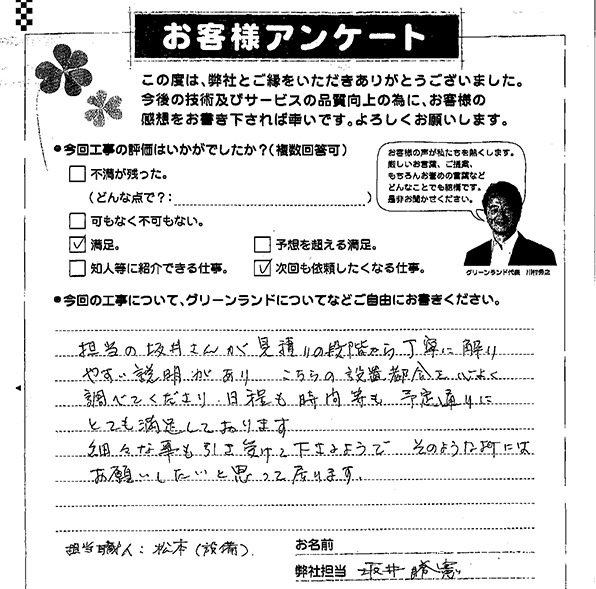 お客様アンケート
この度は、弊社とご縁をいただきありがとうございました。
今後の技術及びサービスの品質向上の為に、お客様の
感想をお書き下されば幸いです。よろしくお願いします。
●今回工事の評価はいかがでしたか？(複数回答可)
不満が残った。
(どんな点で？: )
可もなく不可もない。
満足。
予想を超える満足。
知人等に紹介できる仕事。
次回も依頼したくなる仕事。
お客様の声が私たちを熱くします。
厳しいお言葉、ご提案、
もちろんお誉めの言葉など
どんなことでも結構です。
是非お聞かせください。
グリーンランド代表
●今回の工事について、グリーンランドについてなどご自由にお書きください。
担当の坂井さんが見積りの段階から丁寧に解り
やすい説明があり こちらの設置都合を
調べてくださり 日程も時間等も予定通りに
とても満足しております
細々な事も引き受けて下さるようで そのような時には
お願いしたいと思って居ります。
担当職人: 松本(設備)
お名前
弊社担当 坂井